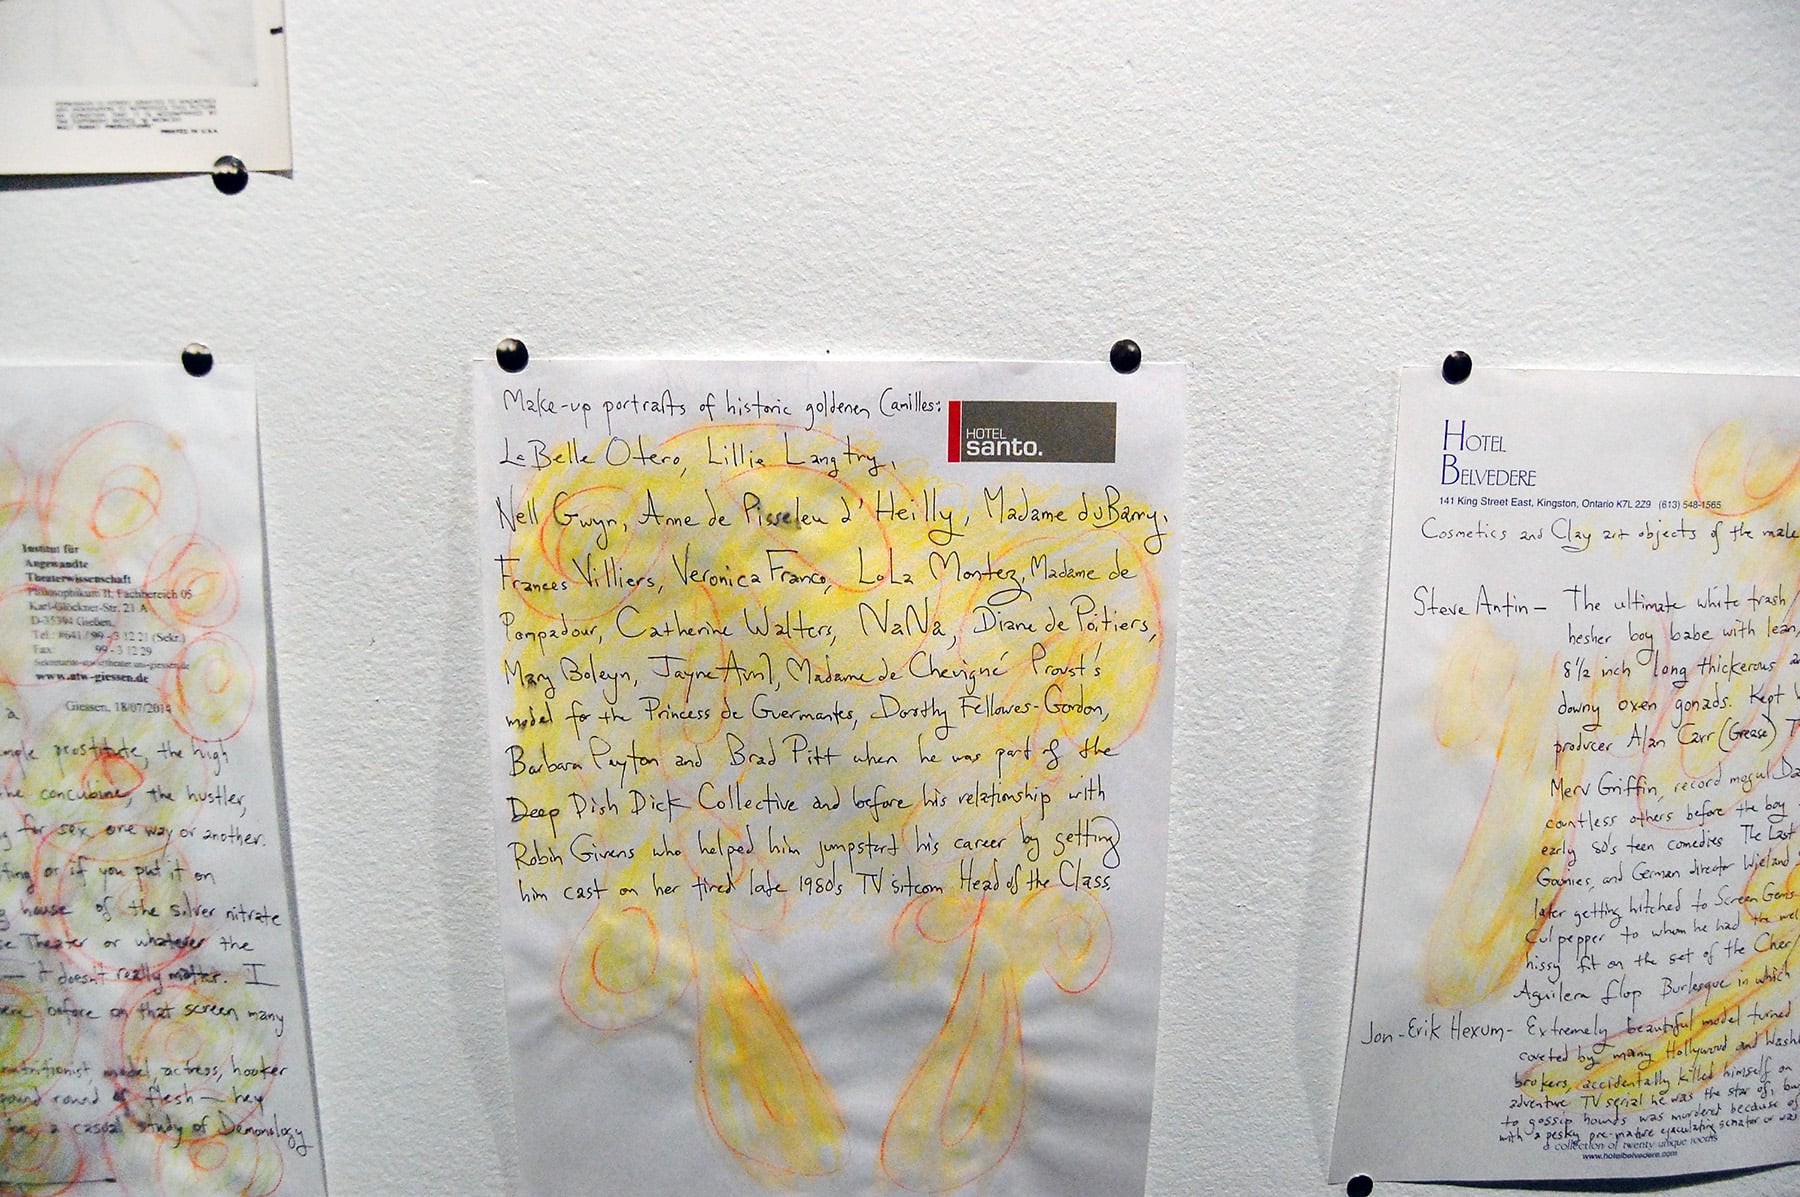 PRINTED IN U.S.A.
Institut für
Angewandte
Theaterwissenschaft
Philosophikum II, Fachbereich 05
Karl-Glöckner-Str. 21 A
D-35394 Gießen
Tel.: 0641 / 99 - 3 12 21 (Sekr.)
Fax: 99 - 3 12 29
www.atw-giessen.de
Giessen, 18/07/2014
a
prostitute, the high
the concubine, the hustler,
for sex one way or another.
or if you put it on
house of the silver nitrate
Theater or whatever the
— it doesn't really matter. I
before on that screen many
model, actress, hooker
round of flesh — hey
a casual study of Demonology
Make-up portraits of historic goldenen Camilles:
HOTEL
santo.
La Belle Otero, Lillie Langtry,
Nell Gwyn, Anne de Pisseleu d'Heilly, Madame du Barry,
Frances Villiers, Veronica Franco, LoLa Montez, Madame de
Pompadour, Catherine Walters, NaNa, Diane de Poitiers,
Mary Boleyn, Jayne Avril, Madame de Chevigné Proust's
model for the Princess de Guermantes, Dorothy Fellowes-Gordon,
Barbara Peyton and Brad Pitt when he was part of the
Deep Dish Dick Collective and before his relationship with
Robin Givens who helped him jumpstart his career by getting
him cast on her tired late 1980s TV sitcom Head of the Class.
HOTEL
BELVEDERE
141 King Street East, Kingston, Ontario K7L 2Z9 (613) 548-1565
Cosmetics and Clay art objects of the male
Steve Antin — The ultimate white trash
hesher boy babe with lean,
8½ inch long thickerous
downy oxen gonads. Kept
producer Alan Carr (Grease)
Merv Griffin, record mogul
countless others before the boy
early 80's teen comedies The Last
Goonies, and German director Wieland
later getting hitched to Screen Gems
Culpepper to whom he had the
hissy fit on the set of the Cher/
Aguilera flop Burlesque in which
Jon-Erik Hexum - Extremely beautiful model turned
coveted by many Hollywood and
brokers, accidentally killed himself on
adventure TV serial he was the star of,
to gossip hounds was murdered because of
with a pesky pre-mature ejaculating senator or was
a collection of twenty unique rooms
www.hotelbelvedere.com